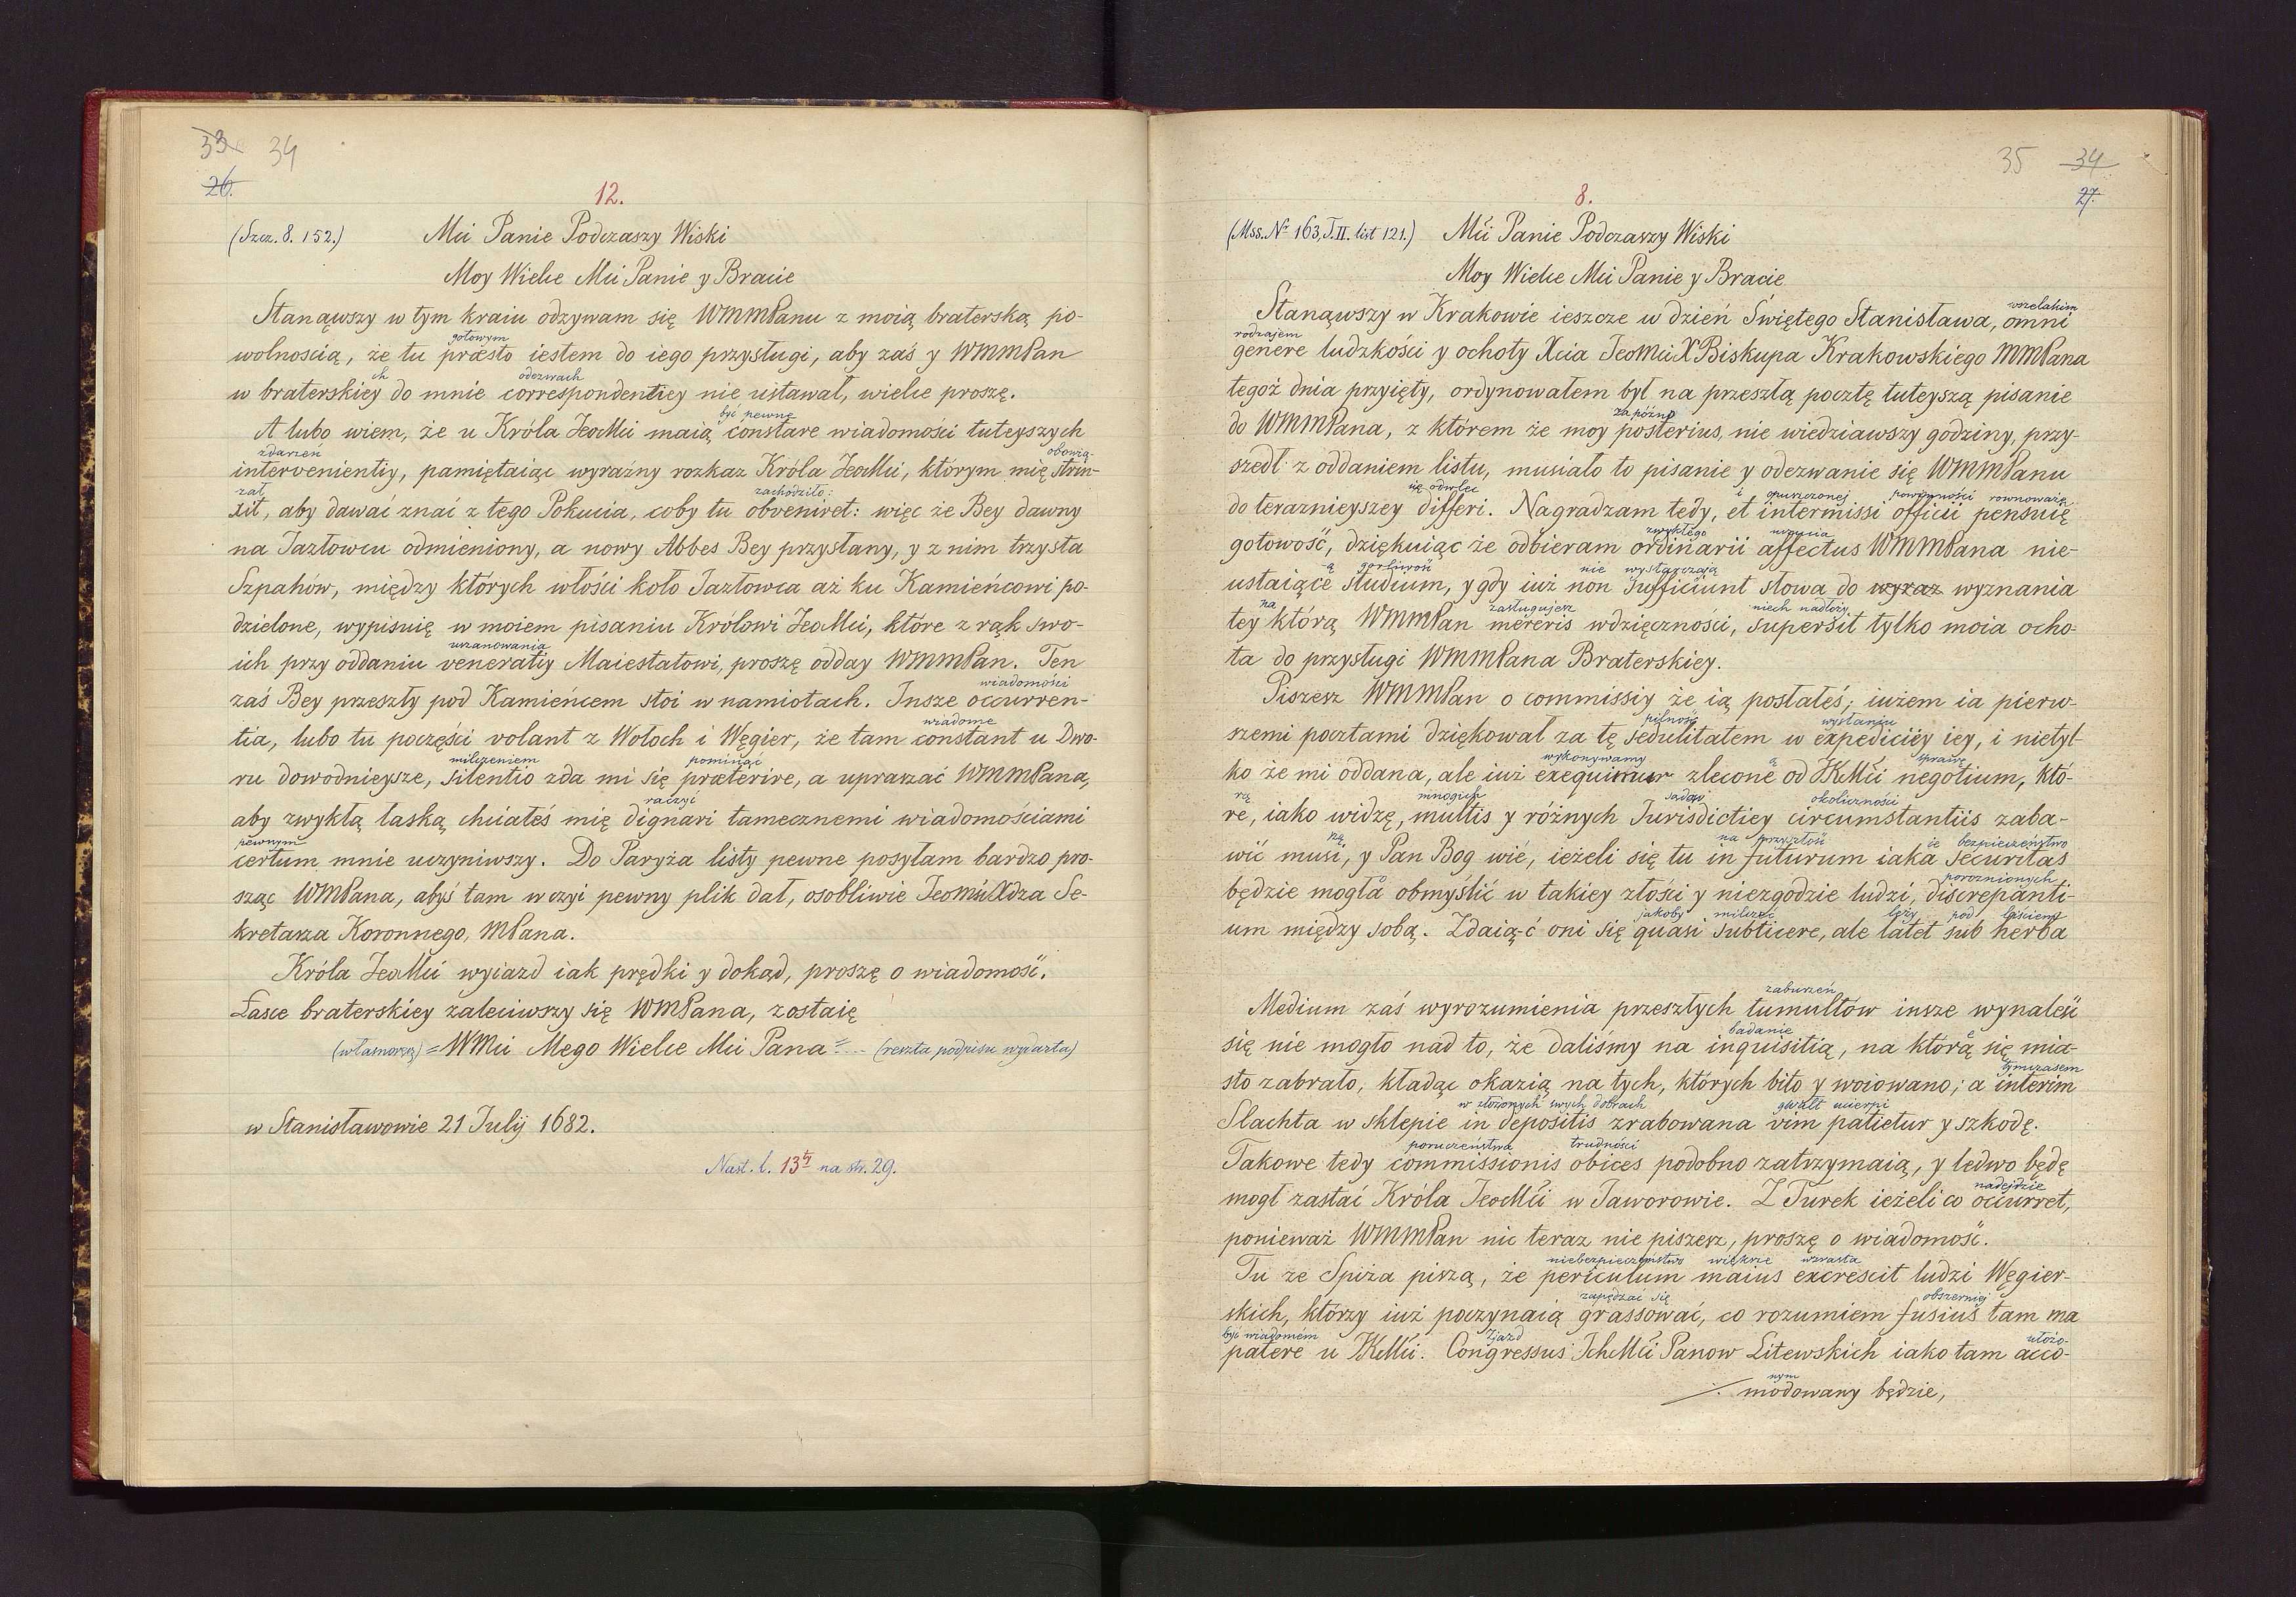 33 34
26.
12.
(Szcz. 8. 152.) Mci Panie Podczaszy Wiski
Moy Wielce Mci Panie y Bracie
Stanąwszy w tym kraiu odzywam się WMMPanu z moią braterską po-
gotowym
wolnością, że tu præsto iestem do iego przysługi, aby zaś y WMMPan
ch odezwach
w braterskiey do mnie correspondentiey nie ustawał, wielce proszę.
być pewne
A lubo wiem, że u Króla JeoMci maią constare wiadomości tuteyszych
zdarzeń obowią-
intervenientiy, pamiętaiąc wyraźny rozkaz Króla JeoMci, którym mię strin-
zał zachodziło:
xit, aby dawać znać z tego Pokucia, coby tu obveniret: więc że Bey dawny
na Jazłowcu odmieniony, a nowy Abbes Bey przysłany, y z nim trzysta
Szpahów, między których włości koło Jazłowca aż ku Kamieńcowi po-
dzielone, wypisuię w moiem pisaniu Królowi JeoMci, które z rąk swo-
uszanowania
ich przy oddaniu veneratiy Maiestatowi, proszę odday WMMPan. Ten
wiadomości
zaś Bey przeszły pod Kamieńcem stoi w namiotach. Insze occurren-
wiadome
tia, lubo tu poczęści volant z Wołoch i Węgier, że tam constant u Dwo-
milczeniem pominąć
ru dowodnieysze, silentio zda mi się præterire, a upraszać WMMPana,
raczyć
aby zwykłą łaską chciałeś mię dignari tamecznemi wiadomościami
pewnym
certum mnie uczyniwszy. Do Paryża listy pewne posyłam bardzo pro-
sząc WMPana, abyś tam w czyi pewny plik dał, osobliwie JeomciXdza Se-
kretarza Koronnego, MPana.
Króla JeoMci wyiazd iak prędki y dokąd, proszę o wiadomość.
Łasce braterskiey zaleciwszy się WMPana, zostaię
(własnoręcz) = WMci Mego Wielce Mci Pana = ... (reszta podpisu wydarta)
w Stanisławowie 21 July 1682.
Nast. l. 13ty na str. 29.
35 34
27.
8.
(Mss. No 163, T. II. list 121.) Mci Panie Podczaszy Wiski
Moy Wielce Mci Panie y Bracie
wszelakim
Stanąwszy w Krakowie ieszcze w dzień Świętego Stanisława, omni
rodzajem
genere ludzkości y ochoty Xcia JeoMci X Biskupa Krakowskiego MMPana
tegoż dnia przyięty, ordynowałem był na przeszłą pocztę tuteyszą pisanie
zapóźno
do WMMPana, z którem że moy posterius, nie wiedziawszy godziny, przy-
szedł z oddaniem listu, musiało to pisanie y odezwanie się WMMPanu
się odwlec i opuszczonej powinności równoważę
do teraznieyszey differi. Nagradzam tedy, et intermissi officii pensuię
zwykłego uczucia
gotowość, dziękuiąc że odbieram ordinarii affectus WMMPana nie-
ą gorliwość nie wystarczają
ustaiące studium, y gdy iuż non sufficiunt słowa do wyraz wyznania
na zasługujesz niech nadłoży
tey którą WMMPan mereris wdzięczności, supersit tylko moia ocho-
ta do przysługi WMMPana Braterskiey.
Piszesz WMMPan o commissiy że ią posłałeś; iużem ia pierw-
pilność wysłaniu
szemi pocztami dziękował za tę sedulitatem w expediciiey iey, i nietyl-
wykonywamy ą sprawę
ko że mi oddana, ale iuż exequimur zlecone od JKMci negotium, któ-
rą mnogich sądow okoliczności
re, iako widzę, multis y różnych Jurisdictiey circumstantiis zaba-
na przyszłość ie bezpieczeństwo
wić musi, y Pan Bog wié, ieżeli się tu in futurum iaka securitas
poroznionych
będzie mogła obmyślić w takiey złości y niezgodzie ludzi, discrepanti-
jakoby milczeć leży pod liściem
um między sobą. Zdaią-ć oni się quasi subticere, ale latet sub herba
zaburzeń
Medium zaś wyrozumienia przeszłych tumultów insze wynaleść
badanie
się nie mogło nad to, że daliśmy na inquisitią, na którą się mia-
tymczasem
sto zabrało, kładąc okazią na tych, których bito y woiowano; a interim
w złożonych swych dobrach gwałt cierpi
Slachta w sklepie in depositis zrabowana vim patietur y szkodę.
poruczeństwa trudności
Takowe tedy commissionis obices podobno zatrzymaią, y ledwo będę
nadejdzie
mogł zastać Króla JeoMci w Jaworowie. Z Turek ieżeli co occurret,
ponieważ WMMPan nic teraz nie piszesz, proszę o wiadomość.
niebezpieczeństwo większe wzrasta
Tu ze Spiża piszą, że periculum maius excrescit ludzi Węgier-
zapędzać się obszerniej
skich, którzy iuż poczynaią grassować, co rozumiem fusius tam ma
być wiadomém Zjazd ułożo-
patére u JKMci. Congressus IchMci Panow Litewskich iako tam acco-
nym
modowany będzie,